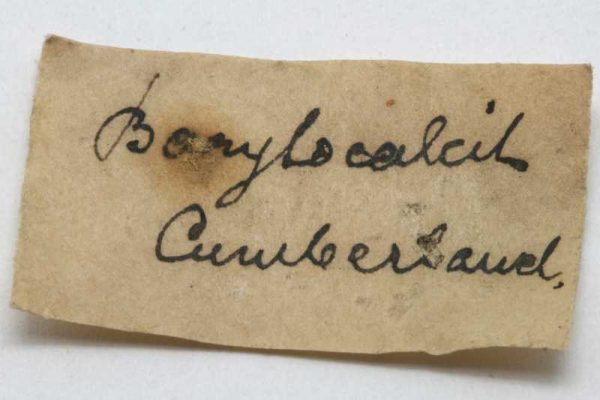 Barytocalcit
Cumberland,